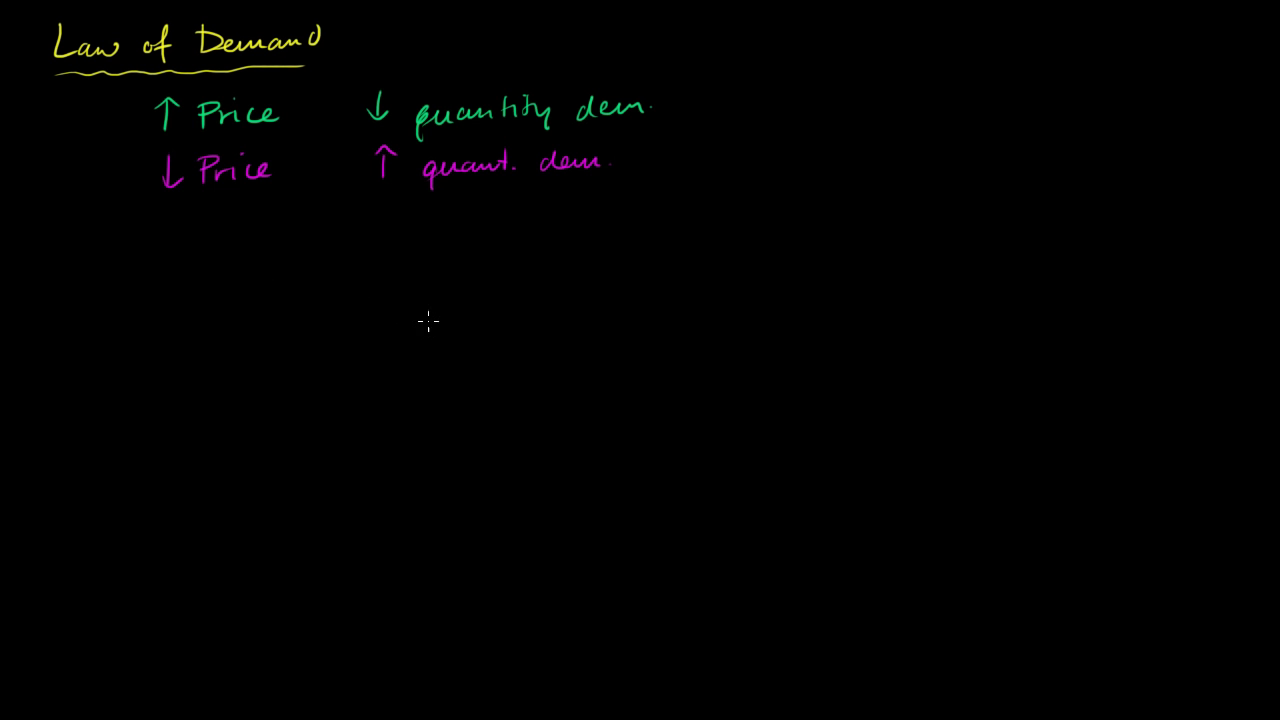 Law of Demand
↑ Price ↓ quantity dem.
↓ Price ↑ quant. dem.